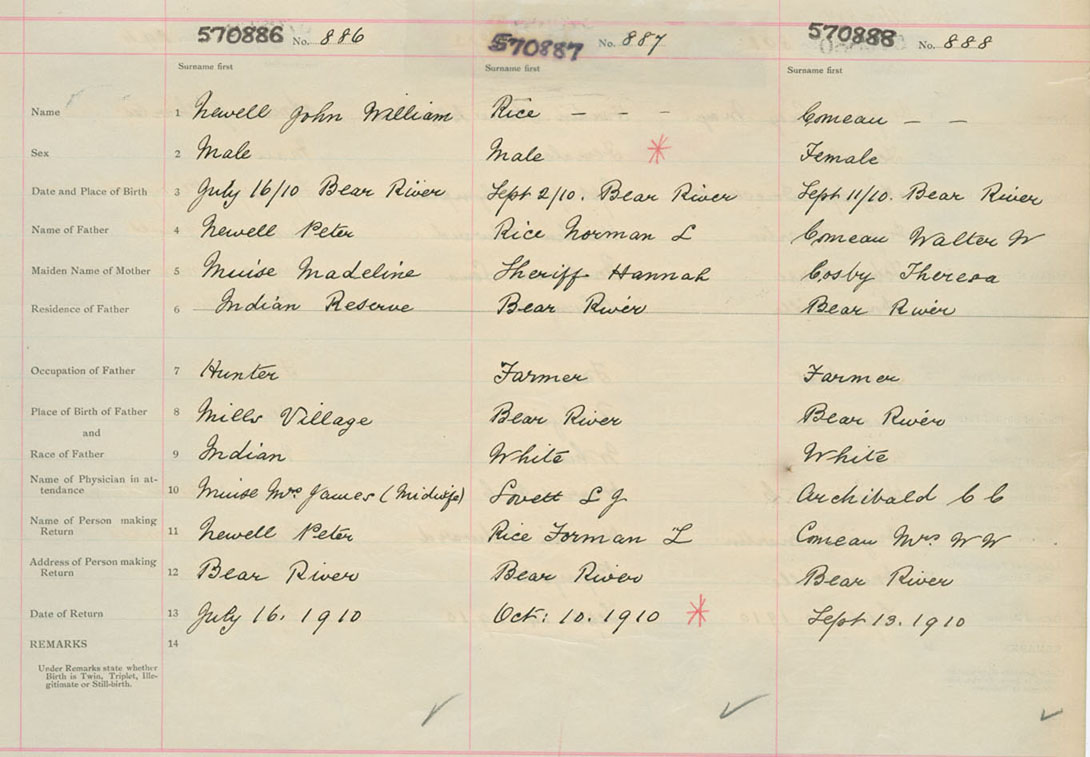 570886 No. 886 570887 No. 887 570888 No. 888
Surname first Surname first Surname first
Name 1 Newell John William Rice – – – Comeau – –
Sex 2 Male Male Female
Date and Place of Birth 3 July 16/10 Bear River Sept 2/10. Bear River Sept 11/10. Bear River
Name of Father 4 Newell Peter Rice Norman L Comeau Walter W
Maiden Name of Mother 5 Muise Madeline Sheriff Hannah Cosby Theresa
Residence of Father 6 Indian Reserve Bear River Bear River
Occupation of Father 7 Hunter Farmer Farmer
Place of Birth of Father 8 Mills Village Bear River Bear River
and
Race of Father 9 Indian White White
Name of Physician in at-
tendance 10 Muise Mrs James (Midwife) Lovett L J Archibald C C
Name of Person making
Return 11 Newell Peter Rice Forman L Comeau Mrs W W
Address of Person making
Return 12 Bear River Bear River Bear River
Date of Return 13 July 16. 1910 Oct: 10. 1910 Sept 13. 1910
REMARKS 14
Under Remarks state whether
Birth is Twin, Triplet, Ille-
gitimate or Still-birth.